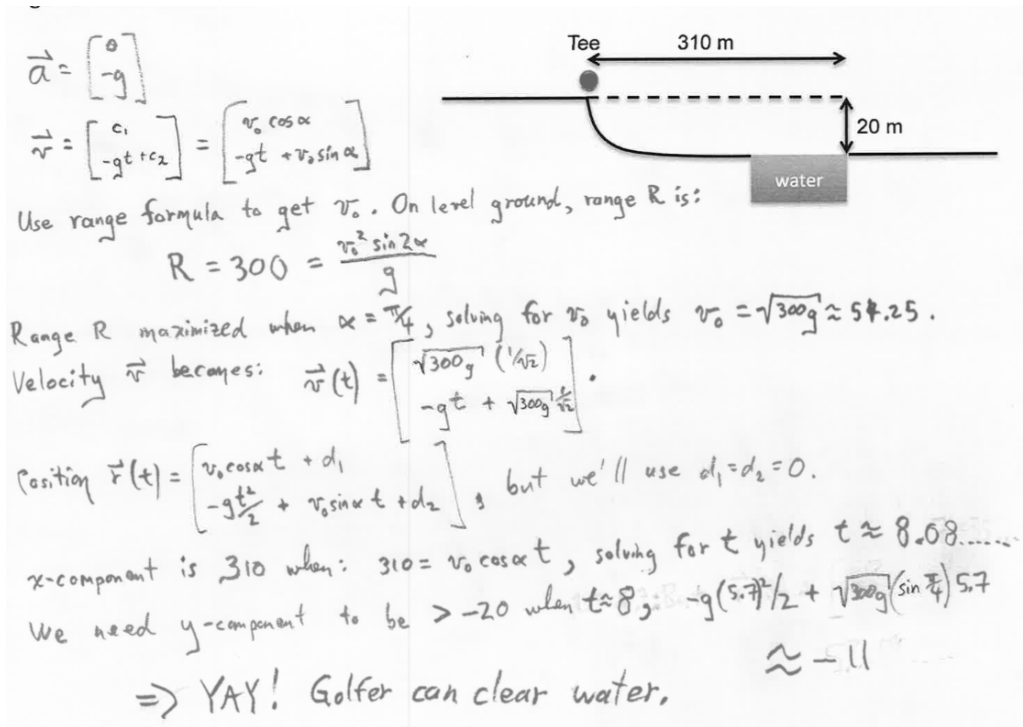 Tee
310 m
20 m
water
a⃗ = [0; -g]
v⃗ = [c₁; -gt + c₂] = [v₀ cosα; -gt + v₀ sinα]
Use range formula to get v₀. On level ground, range R is:
R = 300 = v₀² sin 2α / g
Range R maximized when α = π/4, solving for v₀ yields v₀ = √300g ≈ 54.25.
Velocity v⃗ becomes: v⃗(t) = [√300g (1/√2); -gt + √300g 1/√2].
Position r⃗(t) = [v₀cosα t + d₁; -g t²/2 + v₀sinα t + d₂], but we'll use d₁=d₂=0.
x-component is 310 when: 310 = v₀ cosα t, solving for t yields t ≈ 8.08......
We need y-component to be > -20 when t≈8; -g(5.7)²/2 + √300g (sin π/4) 5.7
≈ -11
⇒ YAY! Golfer can clear water.